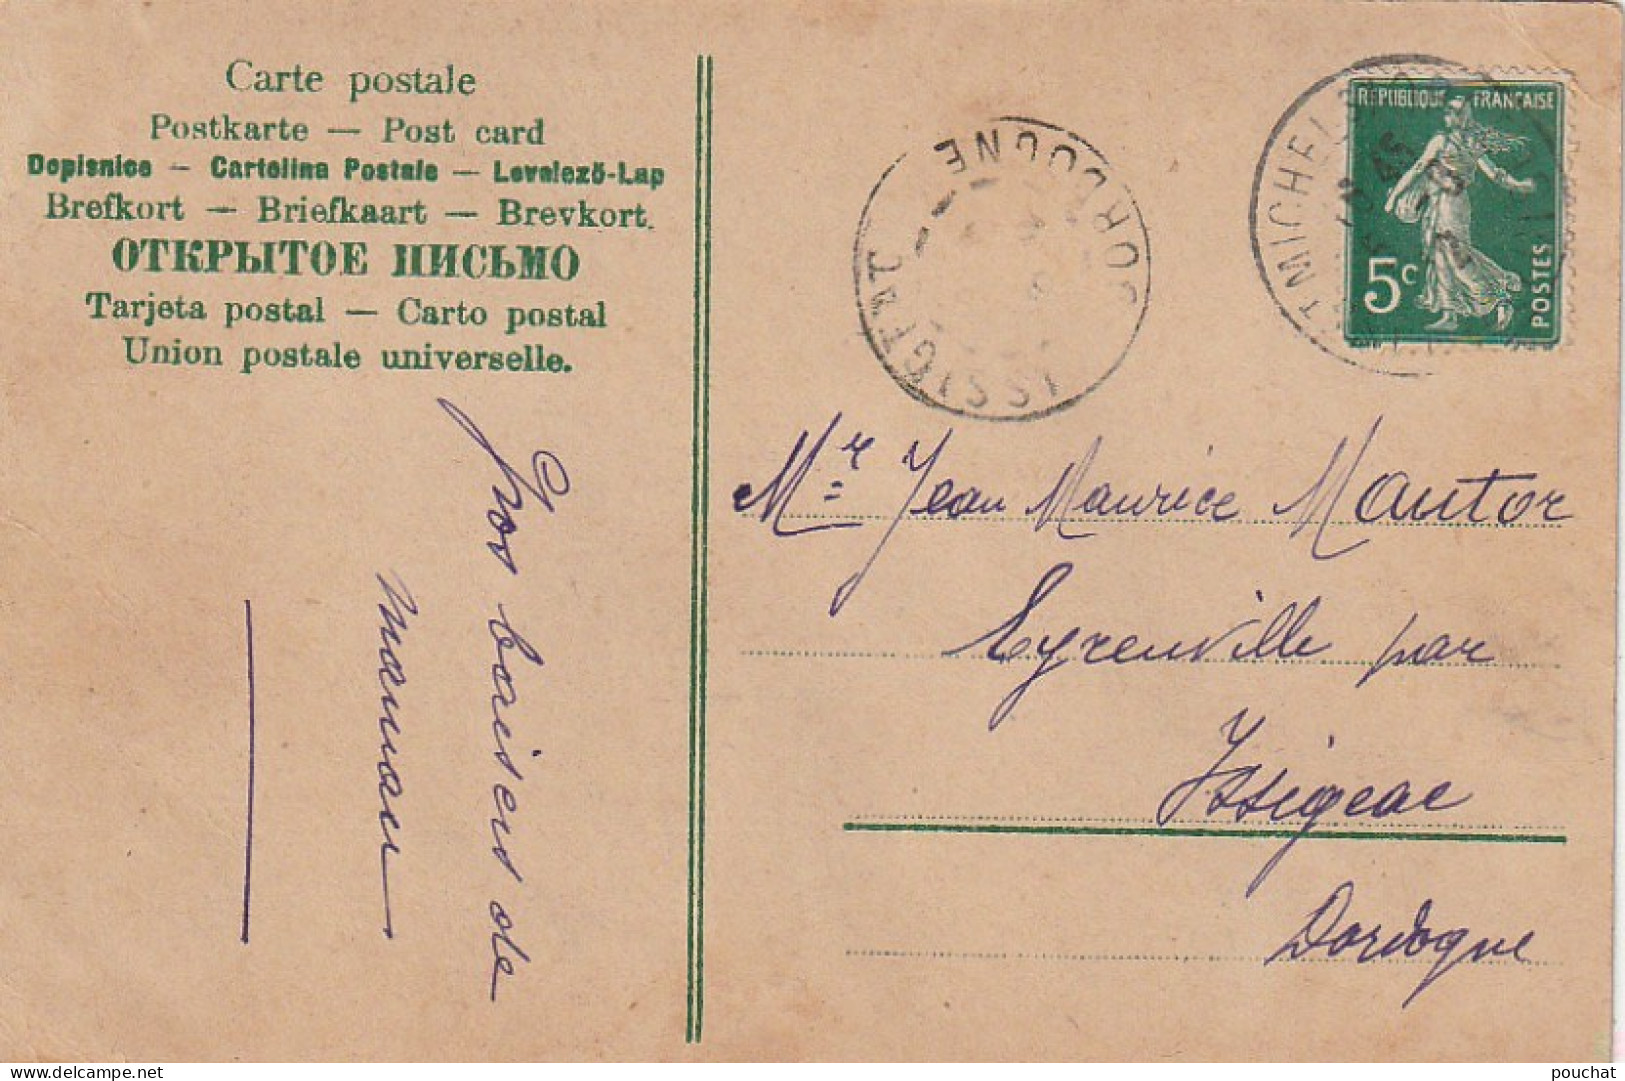 Carte postale
Postkarte — Post card
Dopisnice — Cartolina Postale — Levelező-Lap
Brefkort — Briefkaart — Brevkort.
ОТКРЫТОЕ ПИСЬМО
Tarjeta postal — Carto postal
Union postale universelle.
Gros baisers de
maman
ISSIGEAC
DORDOGNE
REPUBLIQUE FRANÇAISE
5c
POSTES
Mr Jean Maurice Mautor
Eyrenville par
Issigeac
Dordogne
pouchat